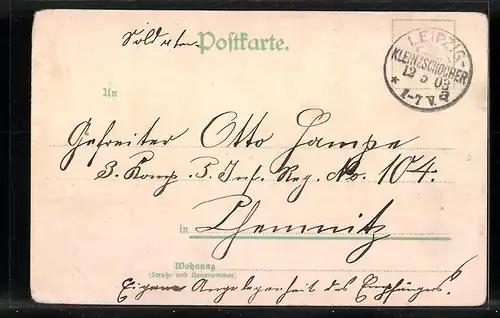 Postkarte.
LEIPZIG-
KLEINZSCHOCHER
12 5 03
* 1-7 V. *
An
Gefreiter Otto Hampe
3. Komp. 5. Inf. Reg. No. 104.
in Chemnitz
Wohnung
(Straße und Hausnummer)
Eigene Angelegenheit des Empfängers.